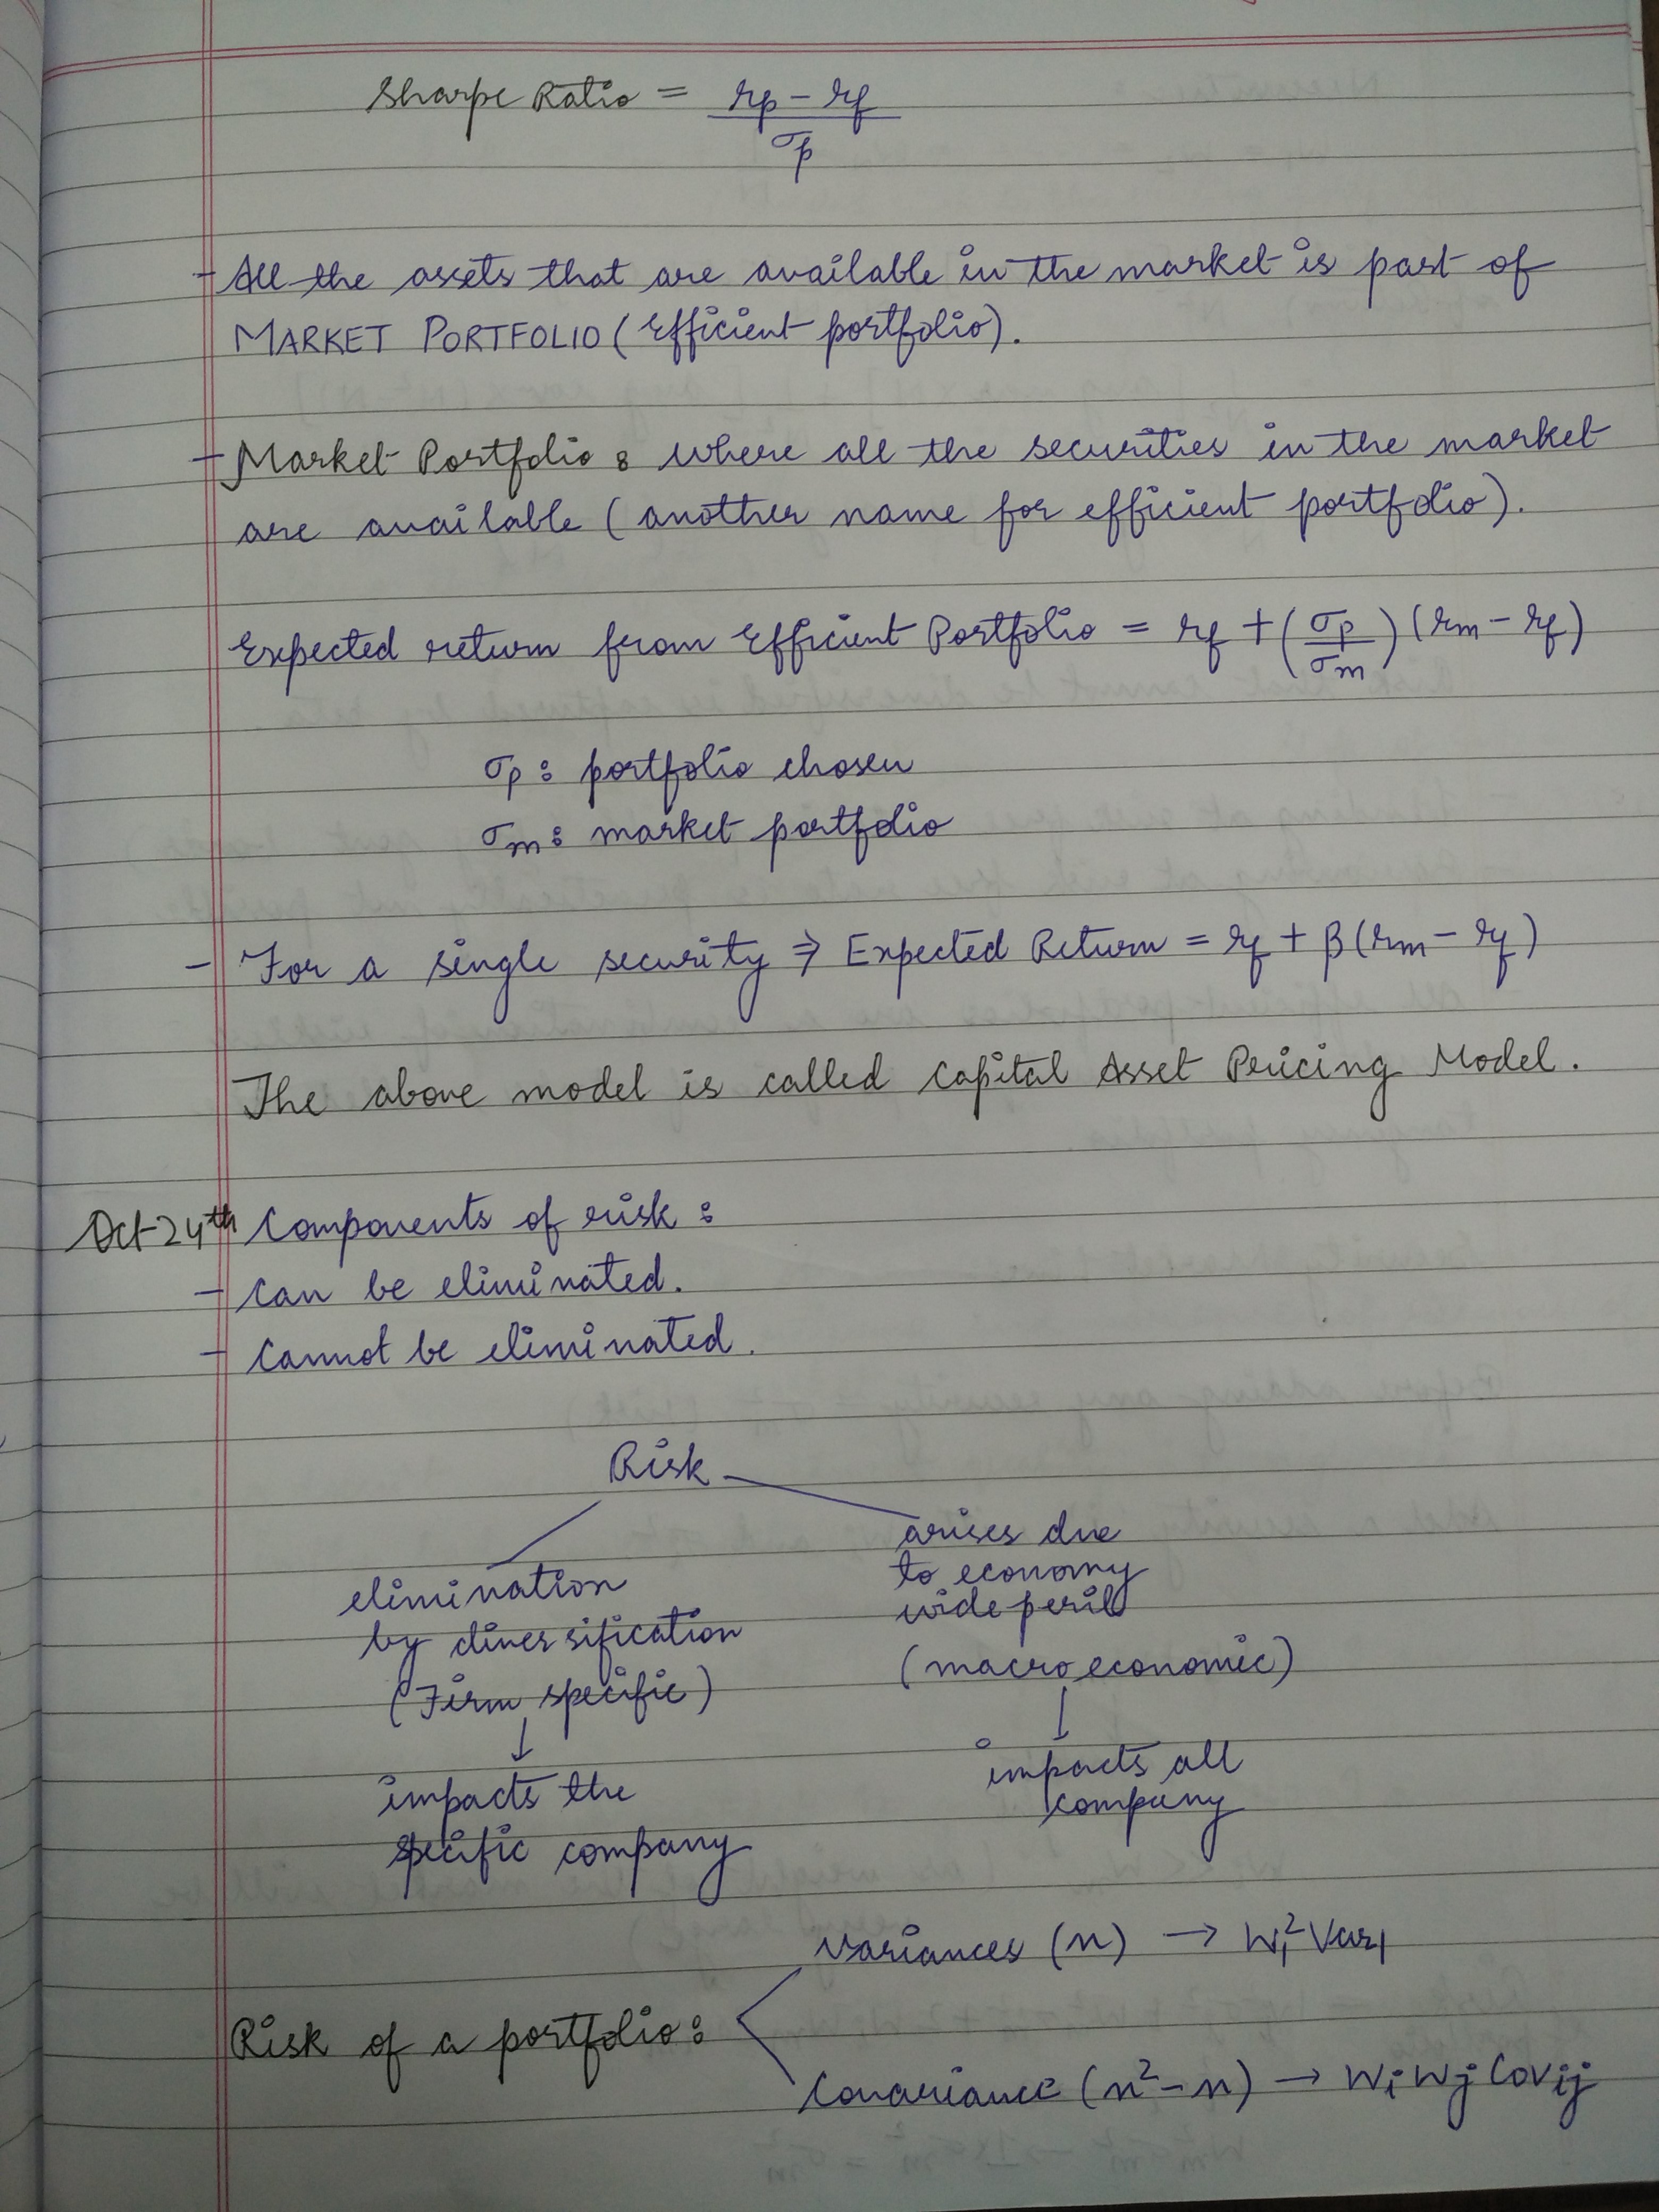 Sharpe Ratio = rp - rf
σp
- All the assets that are available in the market is part of
MARKET PORTFOLIO (Efficient portfolio).
- Market Portfolio : where all the securities in the market
are available (another name for efficient portfolio).
Expected return from Efficient Portfolio = rf + (σp/σm) (rm - rf)
σp : portfolio chosen
σm : market portfolio
- For a single security ⇒ Expected Return = rf + β (rm - rf)
The above model is called Capital Asset Pricing Model.
Oct 24th Components of risk :
- Can be eliminated.
- Cannot be eliminated.
Risk
elimination
by diversification
(Firm specific)
↓
impacts the
specific company
arises due
to economy
wide peril
(macroeconomic)
↓
impacts all
company
Variances (n) → Wi² Var1
Risk of a portfolio :
Covariance (n² - n) → Wi Wj Covij